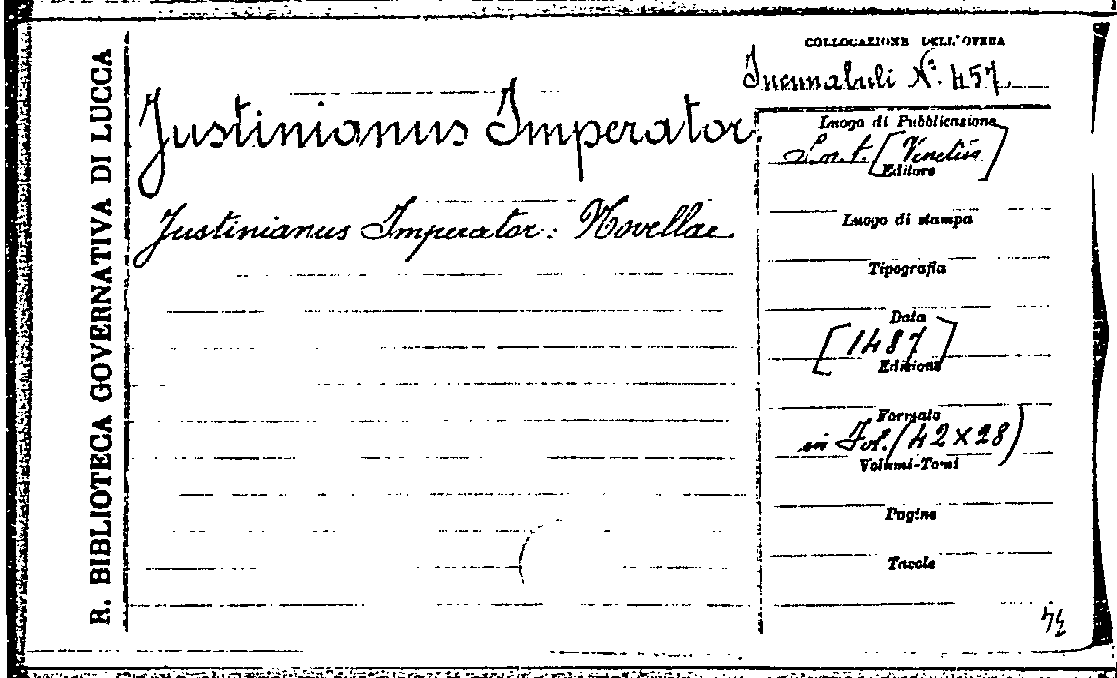 R. BIBLIOTECA GOVERNATIVA DI LUCCA
COLLOCAZIONE DELL'OPERA
Incunabuli N.° 457
Justinianus Imperator
Justinianus Imperator: Novellae
Luogo di Pubblicazione
[Venetiis]
Editore
Luogo di stampa
Tipografia
Data
[1487]
Edizione
Formato
in Fol. (42 x 28)
Volumi-Tomi
Pagine
Tavole